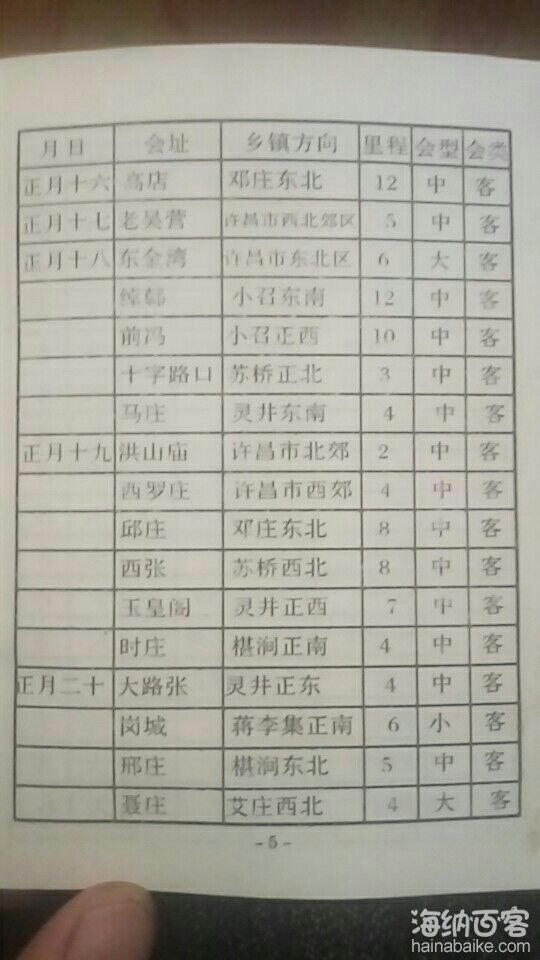 月日 会址 乡镇方向 里程 会型 会类
正月十六 高店 邓庄东北 12 中 客
正月十七 老吴营 许昌市西北郊区 5 中 客
正月十八 东金湾 许昌市东北区 6 大 客
小召东南 12 中 客
前冯 小召正西 10 中 客
十字路口 苏桥正北 3 中 客
马庄 灵井东南 4 中 客
正月十九 洪山庙 许昌市北郊 2 中 客
西罗庄 许昌市西郊 4 中 客
邱庄 邓庄东北 8 中 客
西张 苏桥西北 8 中 客
玉皇阁 灵井正西 7 中 客
时庄 椹涧正南 4 中 客
正月二十 大路张 灵井正东 4 中 客
岗城 蒋李集正南 6 小 客
邢庄 椹涧东北 5 中 客
聂庄 艾庄西北 4 大 客
-5-
海纳百客
hainabaike.com